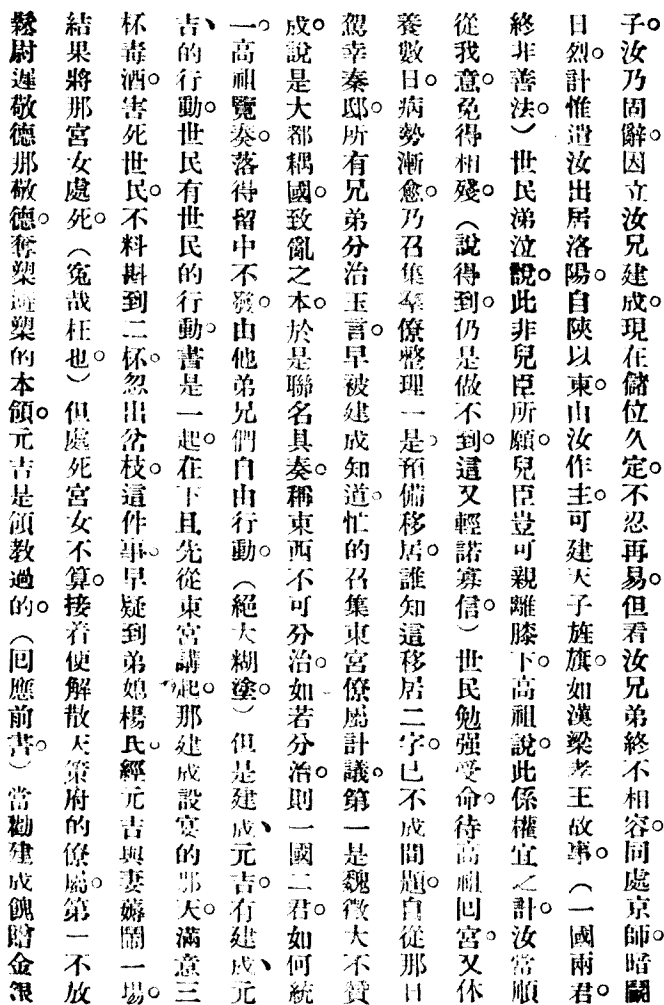 子。汝乃固辭因立汝兄建成現在儲位久定。不忍再易。但看汝兄弟終不相容。同處京師。暗鬬
日烈。計惟遣汝出居洛陽。自陝以東。由汝作主。可建天子旌旗。如漢梁孝王故事。（一國兩君。
終非善法。）世民涕泣說。此非兒臣所願。兒臣豈可親離膝下。高祖說。此係權宜之計。汝當順
從我意。免得相殘。（說得到仍是做不到。這又輕諾寡信。）世民勉强受命。待高祖回宮。又休
養數日。病勢漸愈。乃召集羣僚整理一是。預備移居。誰知這移居二字。已不成問題。自從那日
駕幸秦邸。所有兄弟分治玉言。早被建成知道。忙的召集東宮僚屬計議。第一是魏徵大不贊
成。說是大都耦國。致亂之本。於是聯名具奏。稱東西不可分治。如若分治。則一國二君。如何統
一。高祖覽奏。落得留中不發。由他弟兄們自由行動。（絕大糊塗。）但是建成、元吉。有建成、元
吉、的行動。世民有世民的行動。書是一起。在下且先從東宮講起。那建成設宴的那天。滿意三
杯毒酒。害死世民。不料斟到二杯。忽出岔枝。這件事。早疑到弟媳楊氏。經元吉與妻嫋鬧一場。
結果將那宮女處死。（寃哉枉也。）但處死宮女不算。接着便解散天策府的僚屬。第一不放
鬆尉遲敬德。那敬德。奪槊避槊的本領。元吉是領教過的。（回應前書。）當勸建成餽贈金銀